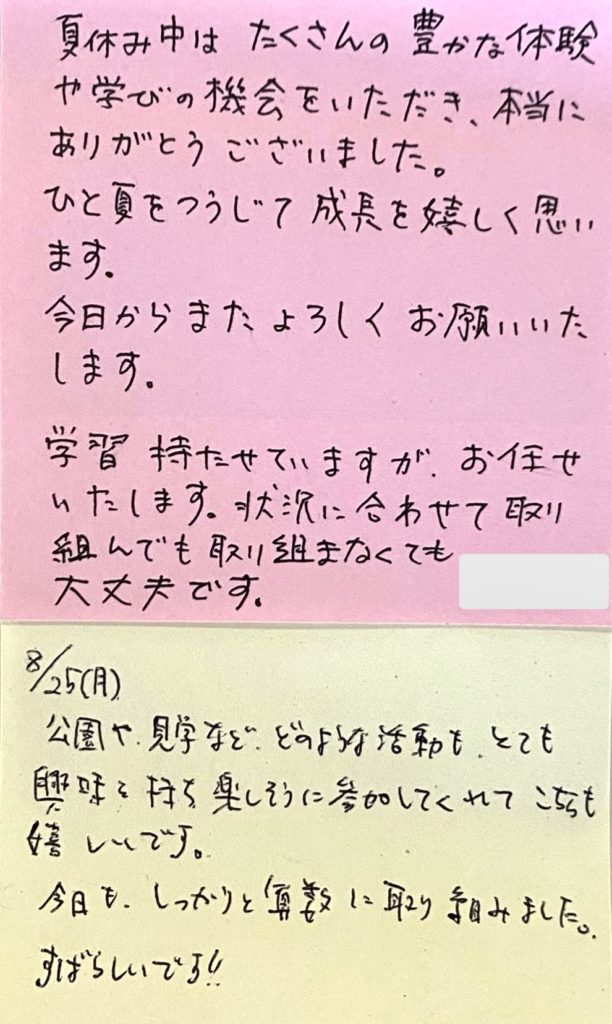 夏休み中は たくさんの 豊かな体験
や学びの機会をいただき、本当に
ありがとう ございました。
ひと夏をつうじて 成長を嬉しく思い
ます。
今日から また よろしく お願いいた
します。
学習 持たせていますが、お任せ
いたします。状況に合わせて取り
組んでも取り組まなくても
大丈夫です。
8/25(月)
公園や、見学など、どのような活動も、とても
興味を持ち 楽しそうに参加してくれて こちらも
嬉しいです。
今日も、しっかりと算数に取り組みました。
すばらしいです!!